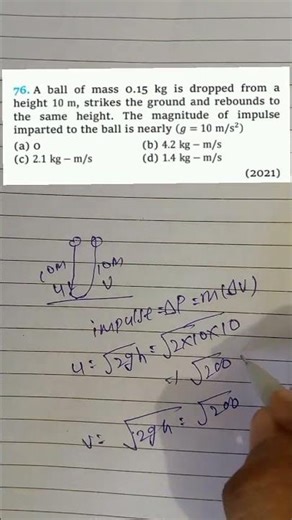 76. A ball of mass 0.15 kg is dropped from a
height 10 m, strikes the ground and rebounds to
the same height. The magnitude of impulse
imparted to the ball is nearly (g = 10 m/s²)
(a) 0 (b) 4.2 kg – m/s
(c) 2.1 kg – m/s (d) 1.4 kg – m/s
(2021)
10M 10M
u v
impulse = ΔP = m(Δv)
u = √2gh = √2×10×10
√200
v = √2gh = √200